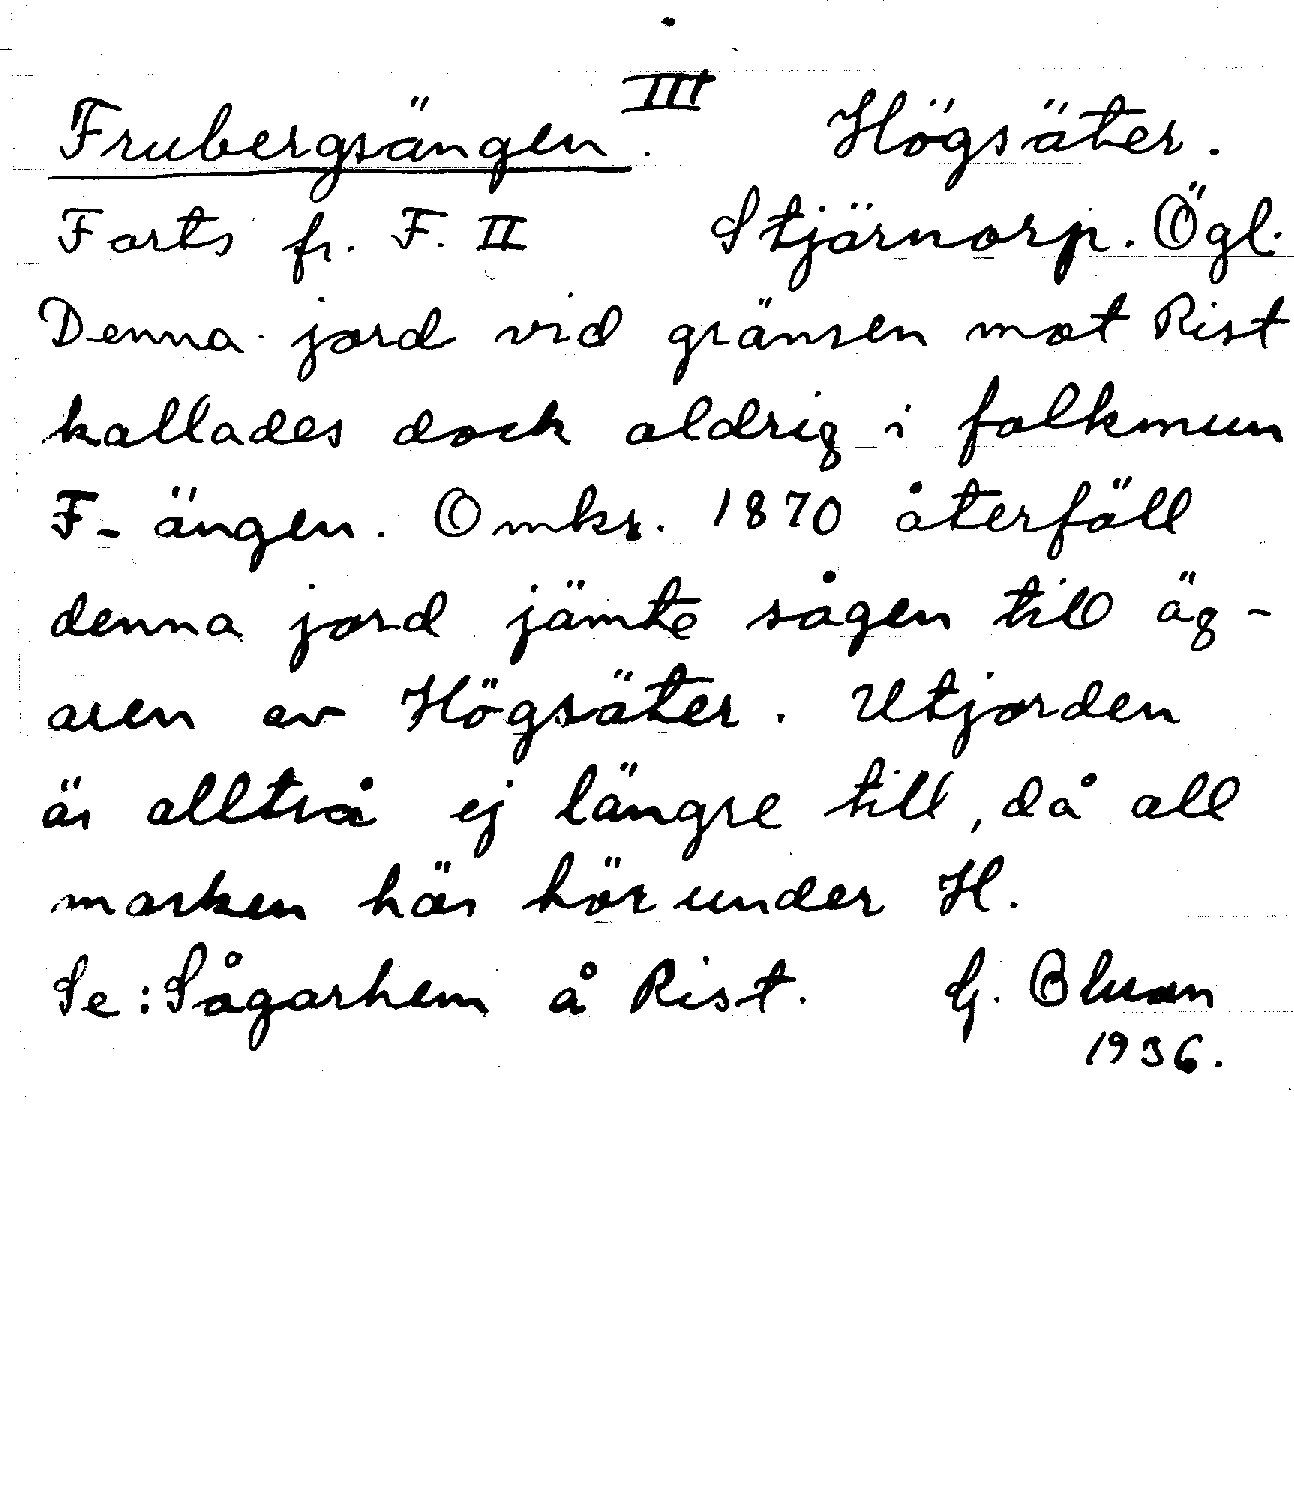 Frubergsängen. III Högsäter.
Forts fr. F. II Stjärnorp. Ögl.
Denna jord vid gränsen mot Rist
kallades dock aldrig i folkmun
F-ängen. Omkr. 1870 återföll
denna jord jämte sågen till äg-
aren av Högsäter. Utjorden
är alltså ej längre till, då all
marken här hör under H.
Se: Sågarhem å Rist. G.
1936.